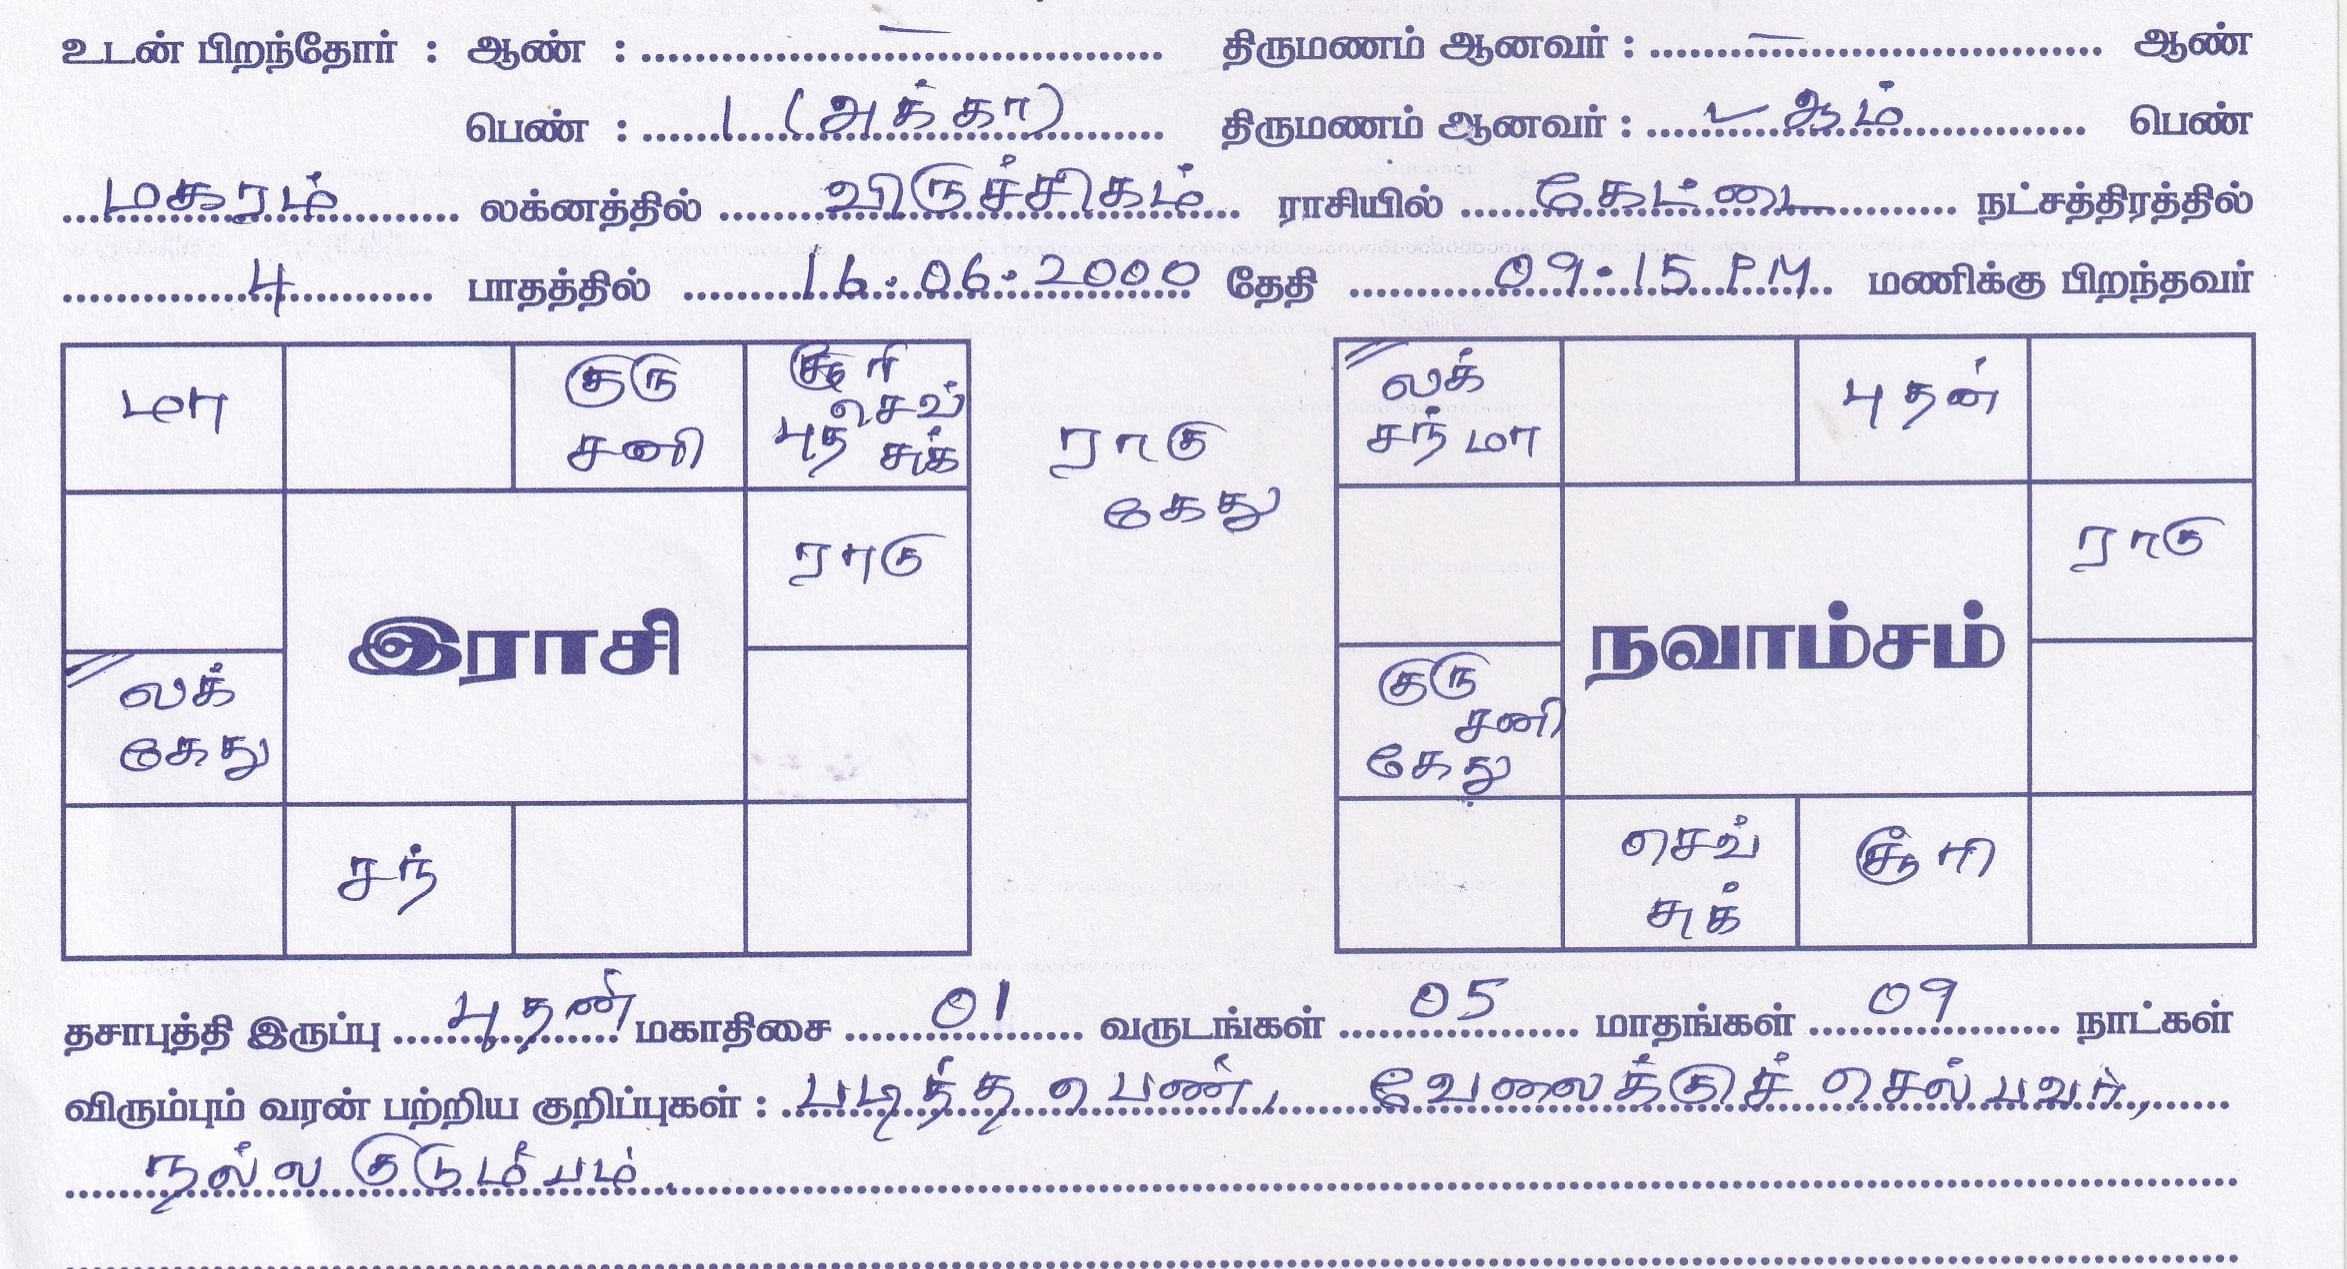 உடன் பிறந்தோர் : ஆண் : ..........—.......... திருமணம் ஆனவர் : ..........—.......... ஆண்
பெண் : ..........1 (அக்கா).......... திருமணம் ஆனவர் : .......... ஆம் .......... பெண்
..........மகரம்.......... லக்னத்தில் ..........விருச்சிகம்.......... ராசியில் ..........கேட்டை.......... நட்சத்திரத்தில்
..........4.......... பாதத்தில் ..........16.06.2000.......... தேதி ..........09.15 PM.......... மணிக்கு பிறந்தவர்
மா
குரு
சனி
சூரி
செவ்
புத சுக்
ராகு
இராசி
லக்
கேது
சந்
ராகு
கேது
லக்
சந் மா
புதன்
ராகு
நவாம்சம்
குரு
சனி
கேது
செவ்
சுக்
சூரி
தசாபுத்தி இருப்பு ..........புதன்.......... மகாதிசை ..........01.......... வருடங்கள் ..........05.......... மாதங்கள் ..........09.......... நாட்கள்
விரும்பும் வரன் பற்றிய குறிப்புகள் : ..........படித்த பெண், வேலைக்குச் செல்பவர்,..........
நல்ல குடும்பம்.